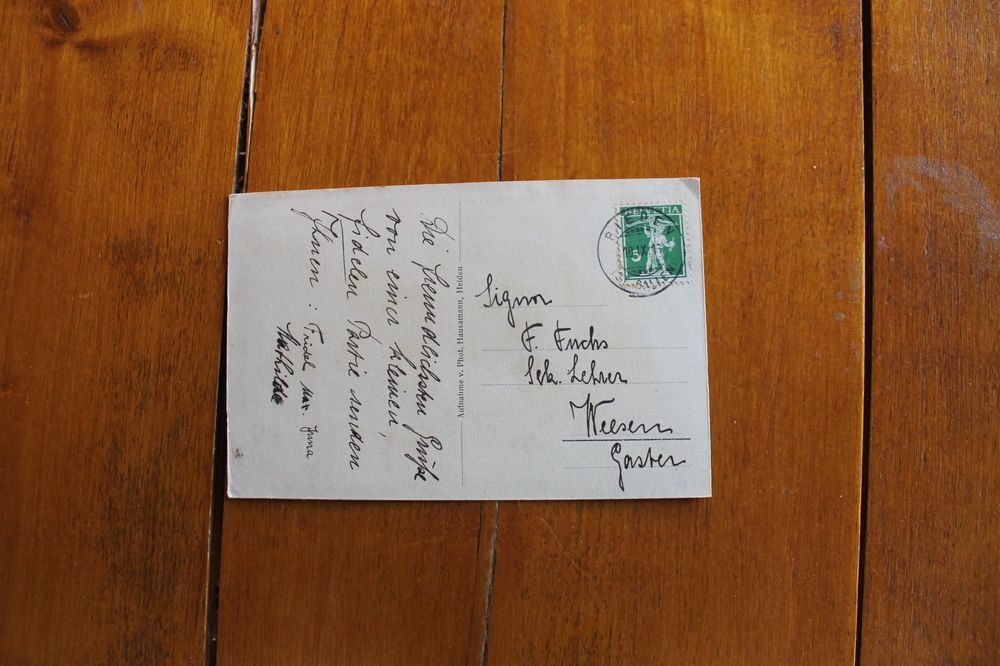 Die freundlichsten Grüße
von einer kleinen,
fidelen Partie senden
Ihnen : Fridel Max. Anna
Mathilde
Aufnahme v. Phot. Hausamann, Heiden
HELVETIA
5
Signor
F. Fuchs
Sek. Lehrer
Weesen
Gaster